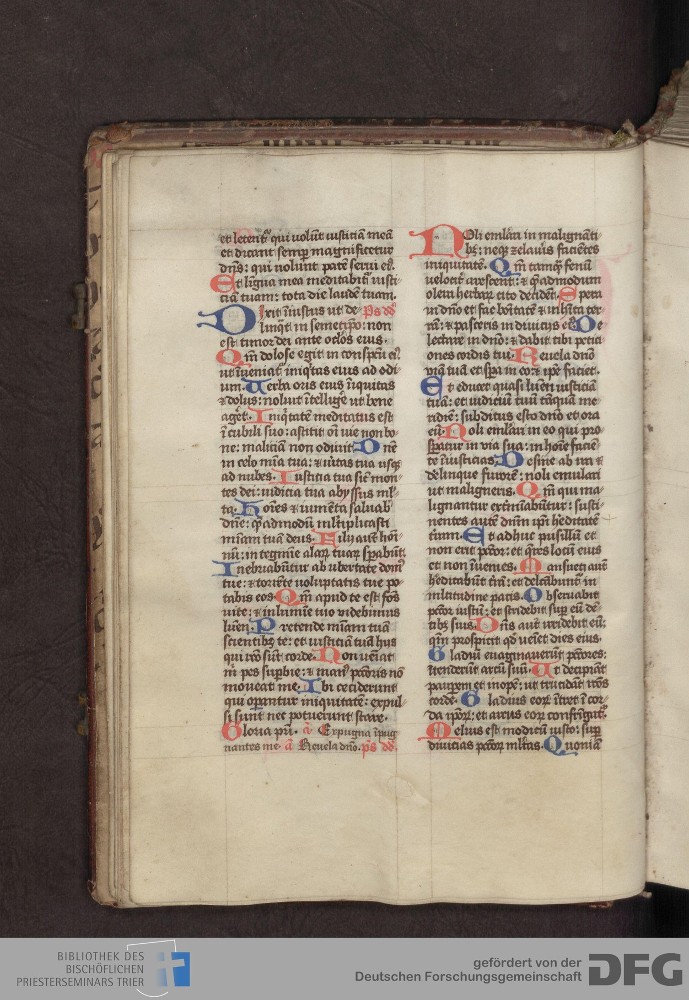 et letent᷑ qui volūt iusticiā meā
et dicant semꝑ magnificetur
dn̄s: qui volunt pacē serui eꝰ.
Et ligua mea meditabit᷑ iusti-
ciā tuam: tota die laudē tuam.
Dixit iniustus ut de- ps dd
linq̄t in semetip̄o: non
est timor dei ante oclōs eius.
Qm̄ dolose egit in conspcū eiꝰ
ut īueniat᷑ iniq̄tas eius ad odi-
um. Verba oris eius īiquitas
⁊ dolus: noluit ītellige ut bene
aget. Iniq̄tatē meditatus est
ī cubili suo: astitit oī uie non bo-
ne: maliciā non odiuit. Dn̄e
in celo mīa tua: ⁊ uitas tua usqꝫ
ad nubes. Iusticia tua sic mon-
tes dei: iudicia tua abyssus ml̄-
ta. Hoīes ⁊ iumēta saluab
dn̄e: q̄admodū ml̄tiplicasti
mīam tuā deus. Filij aut hoī-
nū: in tegmīe alaꝝ tuaꝝ sꝑabūt.
Inebriabūtur ab ubertate domꝰ
tue: ⁊ torrēte voluptatis tue po-
tabis eos. Qm̄ apud te est fōs
uite: ⁊ in lumīe tuo videbimus
lum̄. Pretende mīam tuā
scientibꝫ te: et iusticiā tuā hus
qui rc̄o sūt corde. Non ueniat
m̄ pes suꝑbie: ⁊ manꝰ pc̄coris nō
moueat me. Ibi ceciderunt
qui oꝑantur iniquitatē: expul-
si sunt nec potuerunt stare.
Gloria pr̄i. ā Expugna īpug-
nantes me. ā Reuela dn̄o. ps dd.
Noli emlāri in malignāti-
bꝫ: neqꝫ zelauis faciētes
iniquitatē. Qm̄ tamq̄ fenū
velocit arescent: ⁊ q̄admodum
olera herbaꝝ cito decidēt. Spera
in dn̄o et fac boītatē ⁊ inhīta ter-
rā: ⁊ pasceris in diuicijs eiꝰ. De-
lectare in dn̄o: ⁊ dabit tibi petici-
ones cordis tui. Reuela dn̄o
viā tuā et spa in eo: ⁊ ip̄e faciet.
Et educet quasi lum̄ iusticiā
tuā: et iudiciū tuū tāquā me-
ridiē: subditus esto dn̄o et ora
eū. Noli emlāri in eo qui pro-
sꝑatur in via sua: in hoīe faciē-
te īiusticias. Desine ab ira ⁊
delinque furorē: noli emulari
ut maligneris. Qm̄ qui ma-
lignantur extmīabūtur: susti-
nentes autē dn̄m ip̄i heditabt
trām. Et adhuc pusillū et
non erit pc̄cor: et q̄res locū eius
et non īuenies. Mansueti autē
heditabūt trā: et delcābunt᷑ in
ml̄titudine pacis. Obseruabit
pc̄cor iustū: et stridebit suꝑ eū dē-
tibꝫ suis. Dn̄s aut irridebit eū:
qm̄ prospicit qd veniet dies eius.
Gladiū euaginauerūt pc̄cores:
ītenderūt arcū suū. Ut decipiāt
pauꝑem et inopē: ut trucidāt rc̄os
corde. Gladius eoꝝ ītret ī cor-
da ip̄oꝝ: et arcus eoꝝ confrīgat᷑.
Melius est modicū iusto: suꝑ
diuicias pc̄coꝝ ml̄tas. Quoniā
BIBLIOTHEK DES
BISCHÖFLICHEN
PRIESTERSEMINARS TRIER
gefördert von der
Deutschen Forschungsgemeinschaft
DFG